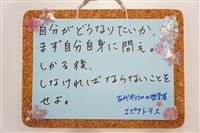 自分がどうなりたいか、
まず自分自身に問え。
しかる後、
しなければならないことを
せよ。
古代ギリシャの哲学者
エピクテトス